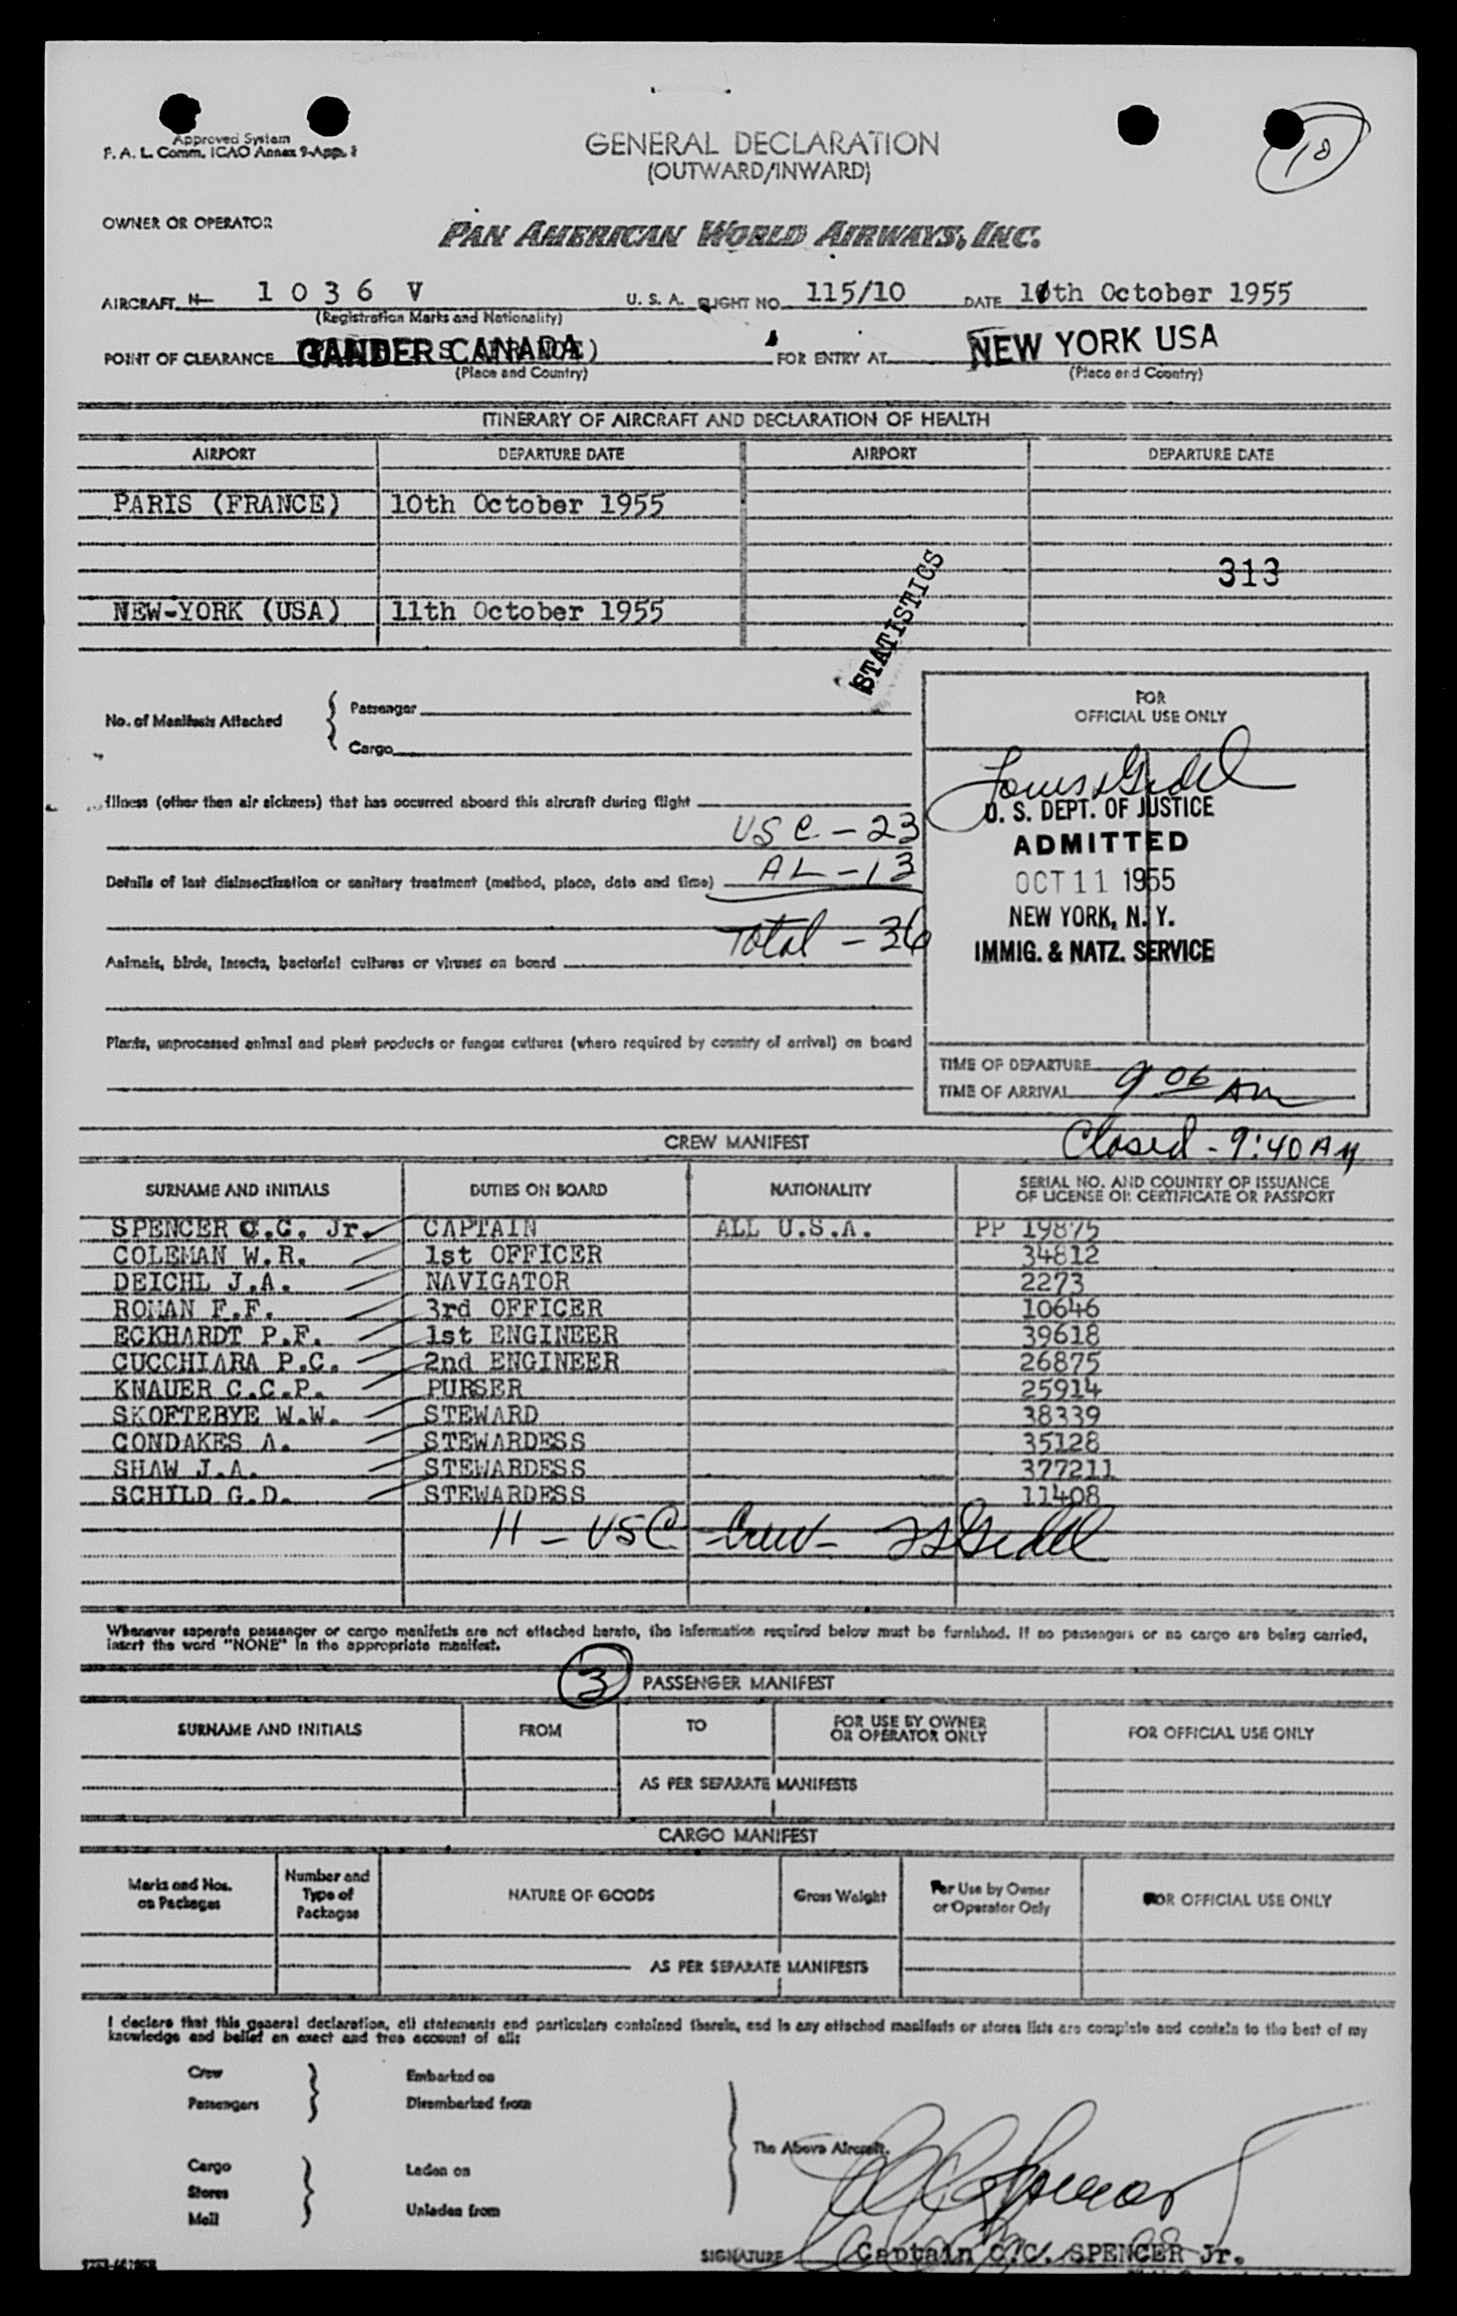 18
Approved System
F. A. L. Comm. ICAO Annex 9-App. 1
GENERAL DECLARATION
(OUTWARD/INWARD)
OWNER OR OPERATOR
PAN AMERICAN WORLD AIRWAYS, INC.
AIRCRAFT N- 1 0 3 6 V U. S. A. FLIGHT NO. 115/10 DATE 10th October 1955
(Registration Marks and Nationality)
POINT OF CLEARANCE GANDER CANADA FOR ENTRY AT NEW YORK USA
(Place and Country) (Place and Country)
ITINERARY OF AIRCRAFT AND DECLARATION OF HEALTH
AIRPORT DEPARTURE DATE AIRPORT DEPARTURE DATE
PARIS (FRANCE) 10th October 1955
313
NEW-YORK (USA) 11th October 1955
STATISTICS
No. of Manifests Attached { Passenger
Cargo
FOR
OFFICIAL USE ONLY
Illness (other than air sickness) that has occurred aboard this aircraft during flight
USC - 23
Details of last disinsectization or sanitary treatment (method, place, date and time) AL - 13
Total - 36
Animals, birds, insects, bacterial cultures or viruses on board
Plants, unprocessed animal and plant products or fungus cultures (where required by country of arrival) on board
Louis Gidel
U. S. DEPT. OF JUSTICE
ADMITTED
OCT 11 1955
NEW YORK, N. Y.
IMMIG. & NATZ. SERVICE
TIME OF DEPARTURE
TIME OF ARRIVAL 9 06 AM
CREW MANIFEST Closed - 9:40 AM
SURNAME AND INITIALS DUTIES ON BOARD NATIONALITY SERIAL NO. AND COUNTRY OF ISSUANCE
OF LICENSE OR CERTIFICATE OR PASSPORT
SPENCER C.C. Jr. CAPTAIN ALL U.S.A. PP 19875
COLEMAN W.R. 1st OFFICER 34812
DEICHL J.A. NAVIGATOR 2273
ROMAN F.F. 3rd OFFICER 10646
ECKHARDT P.F. 1st ENGINEER 39618
CUCCHIARA P.C. 2nd ENGINEER 26875
KNAUER C.C.P. PURSER 25914
SKOFTEBYE W.W. STEWARD 38339
CONDAKES A. STEWARDESS 35128
SHAW J.A. STEWARDESS 377211
SCHILD G.D. STEWARDESS 11408
11 - USC - Crew - LS Gidel
Whenever seperate passenger or cargo manifests are not attached hereto, the information required below must be furnished. If no passengers or no cargo are being carried,
insert the word "NONE" in the appropriate manifest.
3 PASSENGER MANIFEST
SURNAME AND INITIALS FROM TO FOR USE BY OWNER
OR OPERATOR ONLY FOR OFFICIAL USE ONLY
AS PER SEPARATE MANIFESTS
CARGO MANIFEST
Marks and Nos.
on Packages Number and
Type of
Packages NATURE OF GOODS Gross Weight For Use by Owner
or Operator Only FOR OFFICIAL USE ONLY
AS PER SEPARATE MANIFESTS
I declare that this general declaration, all statements and particulars contained therein, and in any attached manifests or stores lists are complete and contain to the best of my
knowledge and belief an exact and true account of all:
Crew } Embarked on
Passengers Disembarked from
The Above Aircraft.
Cargo } Laden on
Stores
Mail Unladen from
CC Spencer
SIGNATURE Captain C.C. SPENCER Jr.